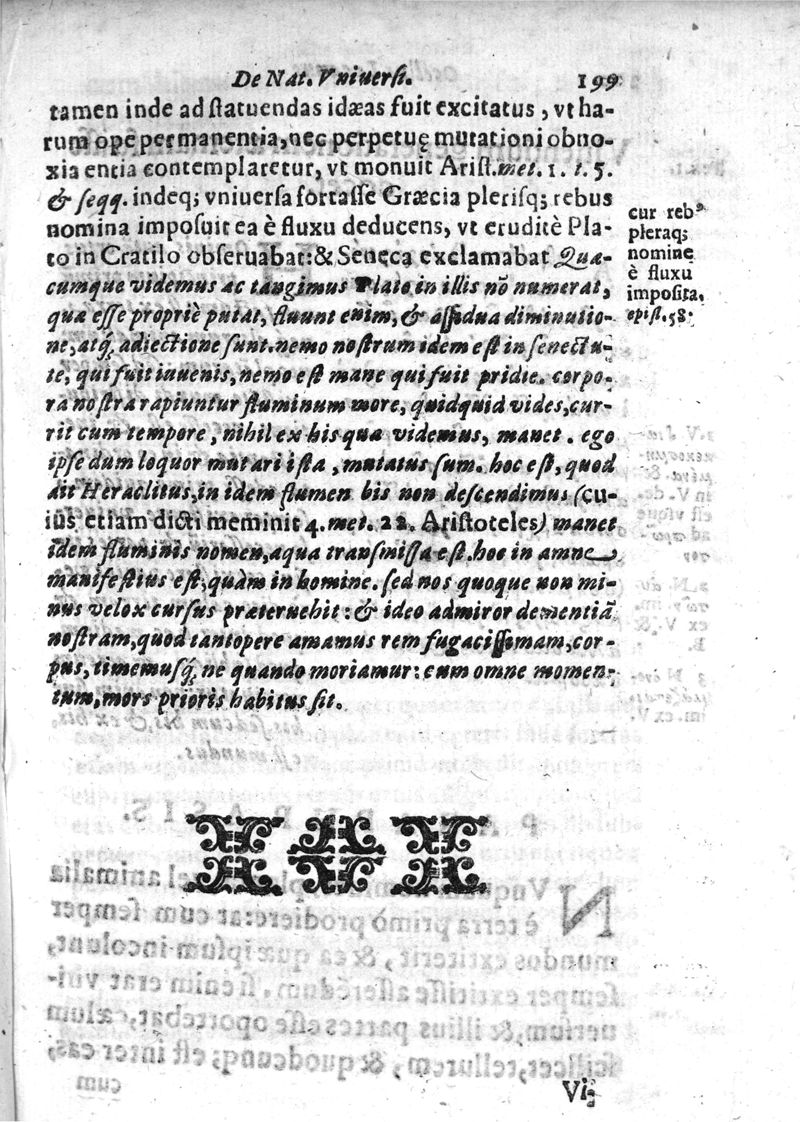 De Nat. Vniuersi.
199
tamen inde ad statuendas idæas fuit excitatus, vt ha-
rum ope permanentia, nec perpetuę mutationi obno-
xia entia contemplaretur, vt monuit Arist. met. 1. t. 5.
& seqq. indeq; vniuersa fortasse Græcia plerisq; rebus
nomina imposuit ea è fluxu deducens, vt eruditè Pla-
to in Cratilo obseruabat: & Seneca exclamabat Quæ-
cumque videmus ac tangimus Plato in illis nõ numerat,
quæ esse propriè putat, fluunt enim, & assidua diminutio-
ne, atq́; adiectione sunt. nemo nostrum idem est in senectu-
te, qui fuit iauenis, nemo est mane qui fuit pridie. corpo-
ra nostra rapiuntur fluminum more, quidquid vides, cur-
rit cum tempore, nihil ex his quæ videmus, manet. ego
ipse dum loquor mutari ista, mutatus sum. hoc est, quod
ait Heraclitus, in idem flumen bis non descendimus (cu-
ius etiam dicti meminit 4. met. 22. Aristoteles) manet
idem fluminis nomen, aqua transmissa est. hoc in amne
manifestius est, quàm in homine. sed nos quoque non mi-
nus velox cursus præteruehit: & ideo admiror dementiã
nostram, quod tantopere amamus rem fugacissimam, cor-
pus, timemusq́; ne quando moriamur: cum omne momen-
tum, mors prioris habitus sit.
cur reb⁹
pleraq;
nomine
è fluxu
imposita.
epist. 58.
Vi;